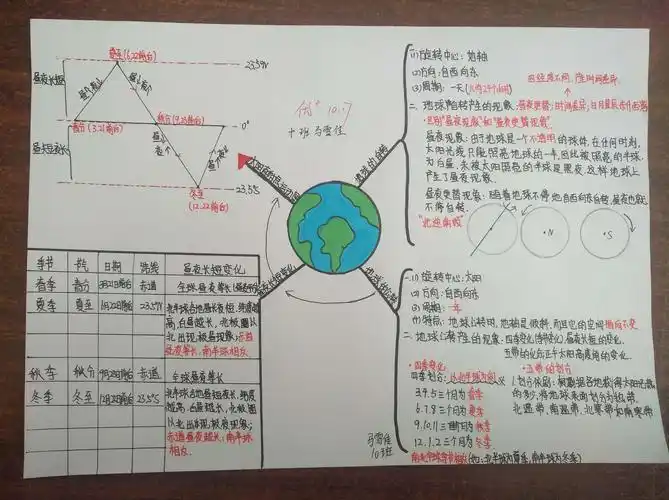 夏至(6.22前后)
23.5°N
昼长夜短
春分(3.21前后)
秋分(9.23前后)
0°
昼短夜长
冬至
(12.22前后)
23.5°S
优+ 10.17
十班马雪佳
地球的自转
地球的公转
昼夜长短变化
(1)旋转中心:地轴
(2)方向:自西向东
(3)周期:一天
因经度不同,产生时间差异
二、地球自转产生的现象:昼夜更替;时间差异;
区别"昼夜现象"和"昼夜更替现象"
昼夜现象:由于地球是一个不透明的球体,在任何时刻,
太阳光线只能照亮地球的一半,因此被照亮的半球
为白昼,未被太阳照亮的半球是黑夜,这样地球上
产生了昼夜现象.
昼夜更替现象:随着地球不停地自西向东自转,昼夜也就
不停自转.
"北逆南顺"
N
S
一.(1)旋转中心:太阳
(2)方向:自西向东
(3)周期:一年
(4)特点:地球公转时,地轴是倾斜,而且它的空间指向不变
二、地球公转产生的现象:四季变化,昼夜长短的变化.
五带的化分,正午太阳高度角的变化.
四季变化
五带的划分
四季划分:以北半球为例
3.4.5三个月为春季
6.7.8三个月为夏季
9.10.11三个月为秋季
12.1.2三个月为冬季
1.划分依据:根据各地获得太阳光热
的多少,将地球表面划分为五带.
北温带、南温带、北寒带和南寒带
季节 节气 日期 路线 昼夜长短变化
春季 春分 3月21日前后 赤道 全球昼夜等长
夏季 夏至 6月22日前后 23.5°N 北半球各地昼长夜短,纬度越
高,白昼越长,北极圈以
北出现极昼现象;赤道
昼夜等长,南半球相反
秋季 秋分 9月23日前后 赤道 全球昼夜等长
冬季 冬至 12月22日前后 23.5°S 北半球各地昼短夜长,纬度
越高,白昼越长,北极圈
以北出现极夜现象;
赤道昼夜等长;南半球
相反.
马雪佳
10班